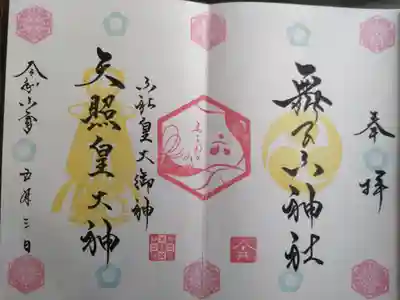 奉拝
舞子六神社
六社皇大御神
天照皇大神
令和六年
五月三日
六